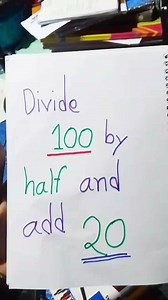 Divide
100 by
half and
add 20